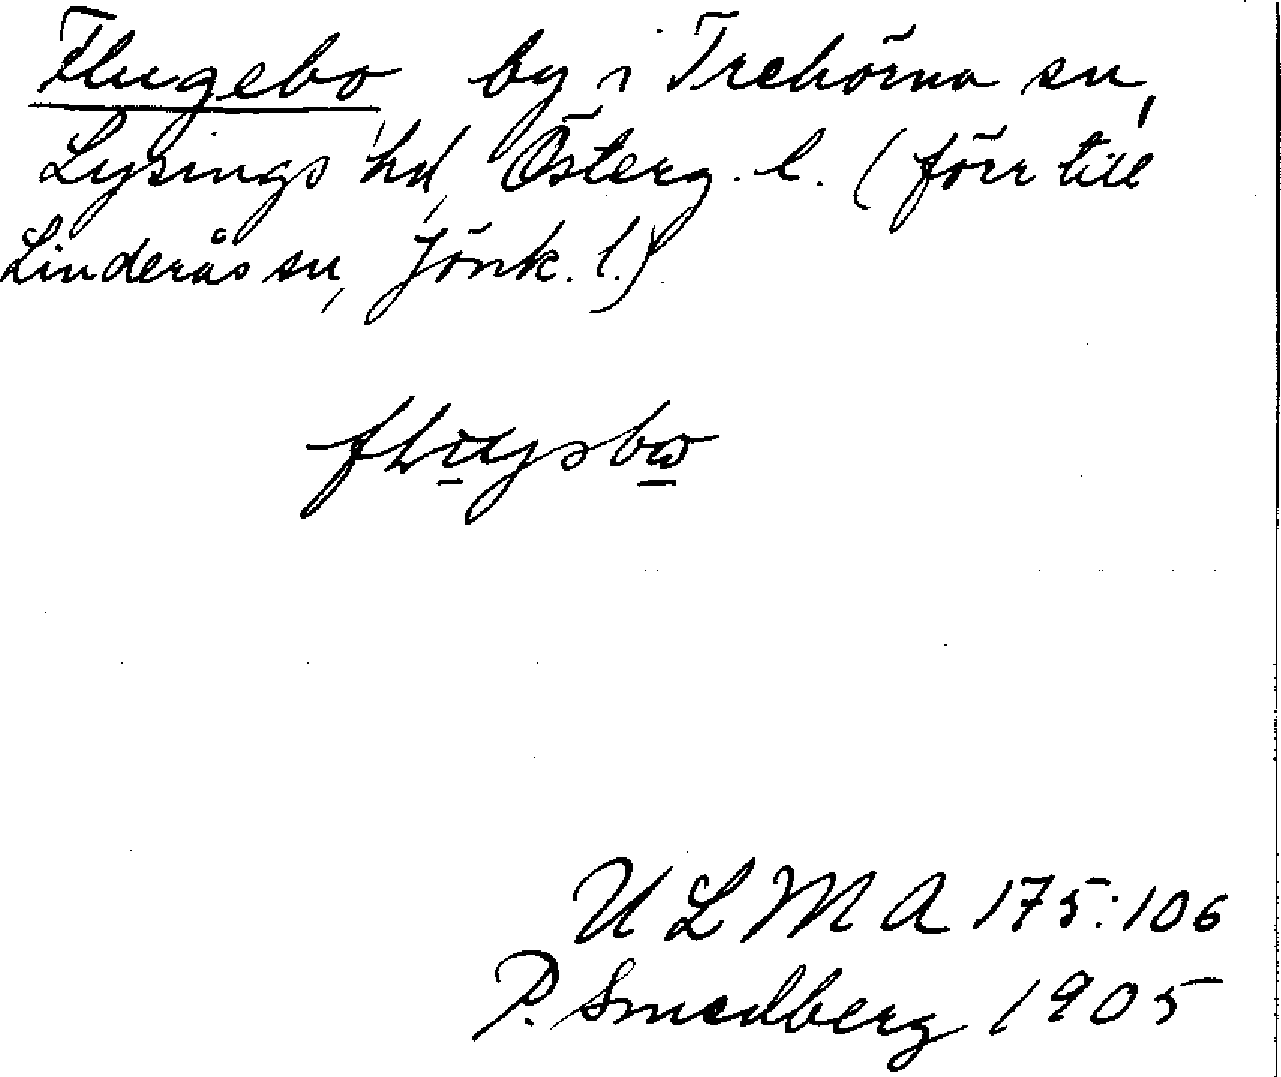 Flugebo, by i Trehörna sn,
Lysings hd, Österg. l. (förr till
Linderås sn, Jönk. l.)
U L M A 175:106
P. Smedberg 1905